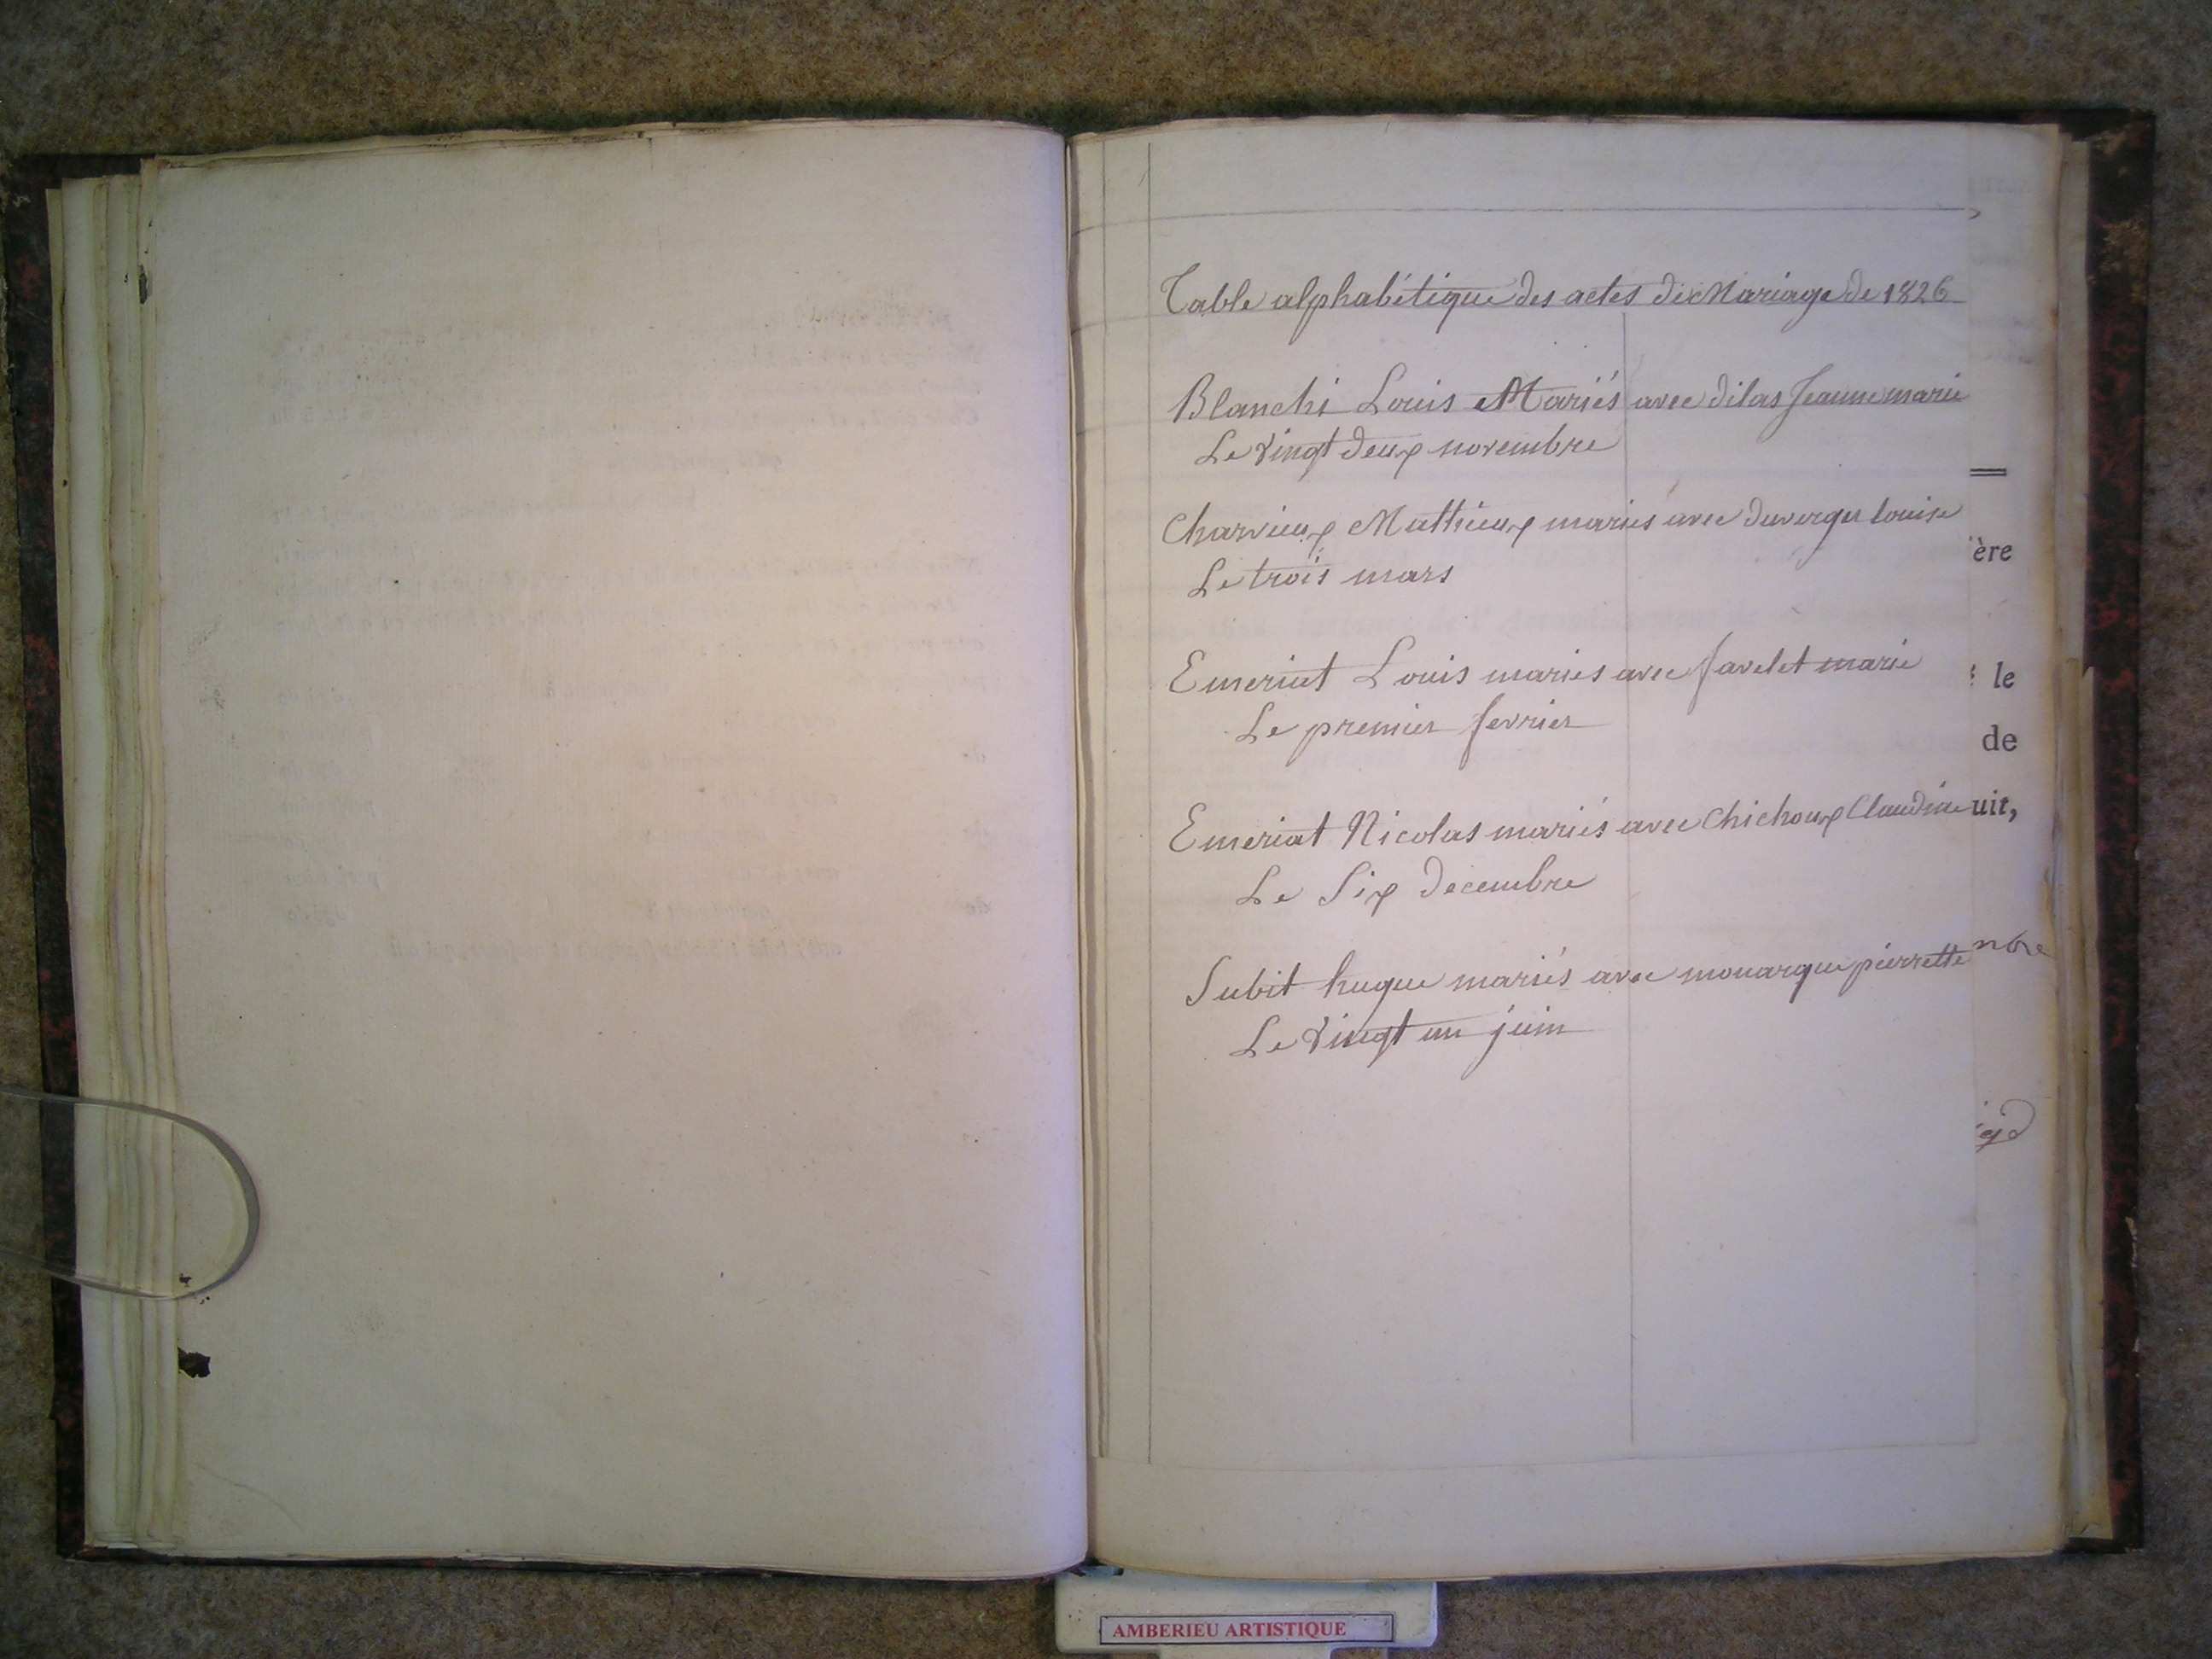 Table alphabétique des actes de Mariage de 1826
Blanchi Louis Mariés avec dilas Jeanne marie
Le vingt deux novembre
Charvieux Mathieux mariés avec duverger Louise
Le trois mars
Emeriat Louis mariés avec favelet marie
Le premier fevrier
Emeriat Nicolas mariés avec Chichoux Claudine
Le Six decembre
Subit hugue mariés avec monarque pierrette
Le vingt un juin
ère
le
de
uit,
nbre
AMBERIEU ARTISTIQUE